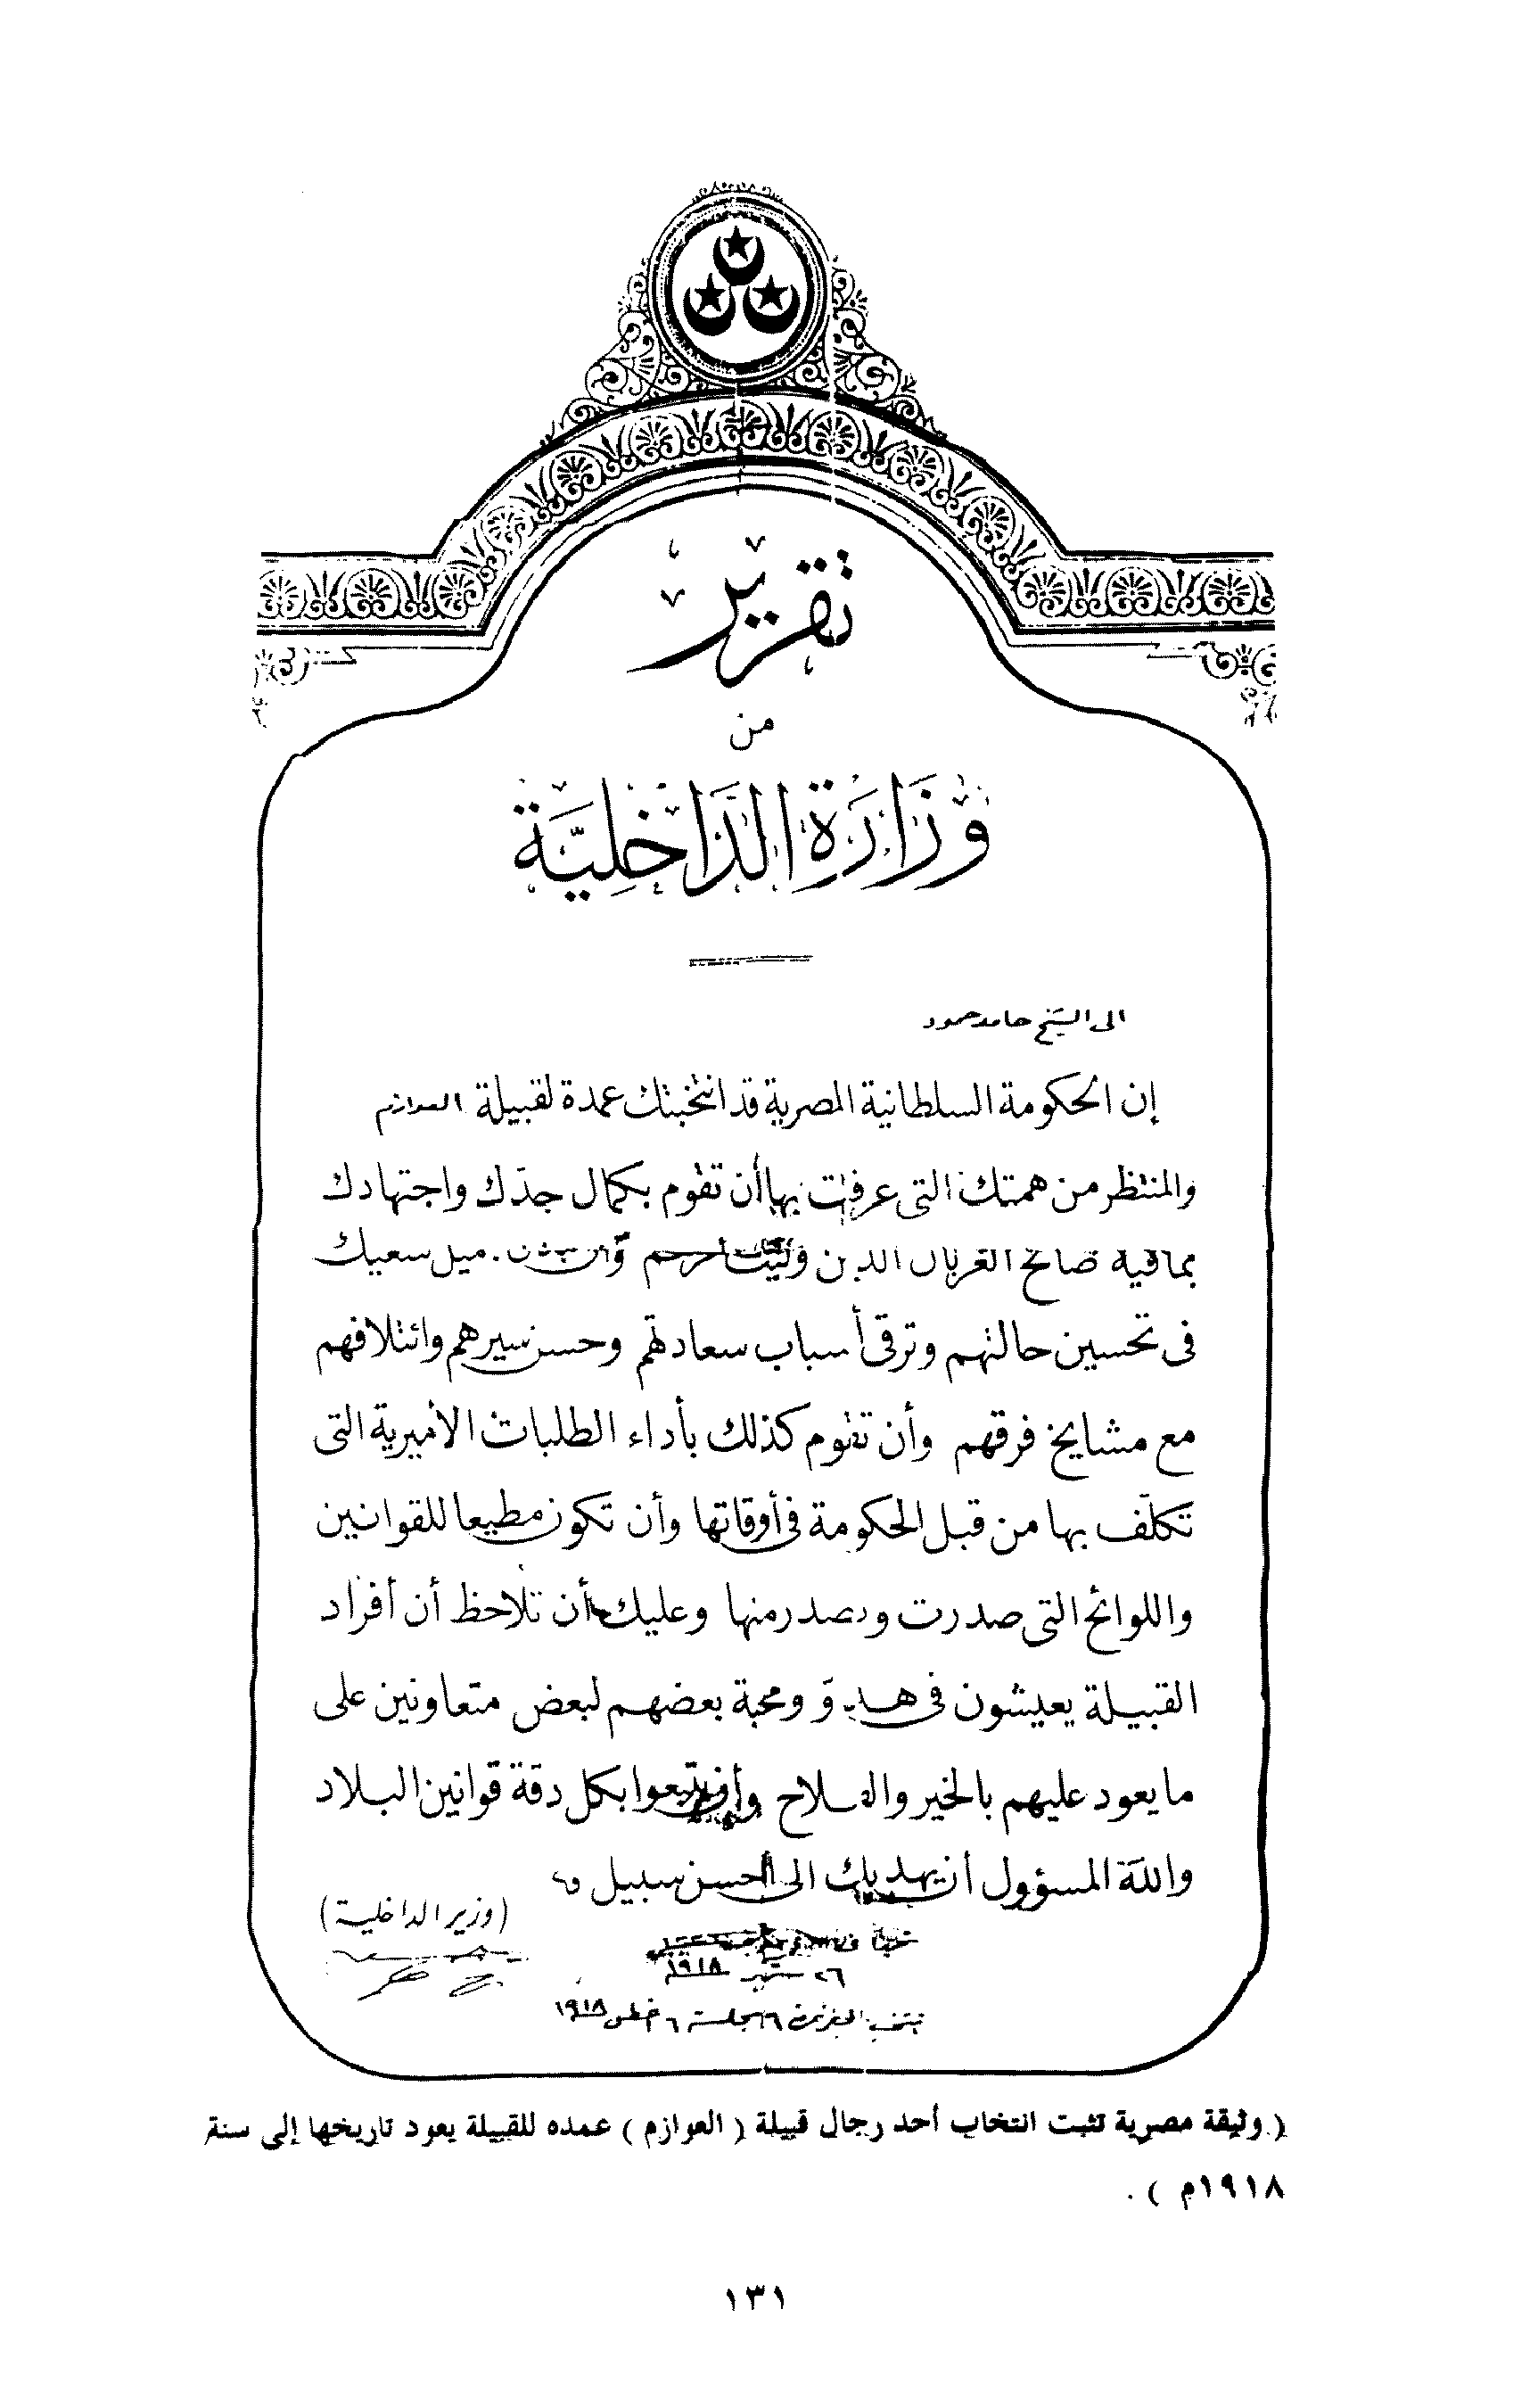 تقرير
من
وَزَارَةِ الدَّاخِلِيَّة
الى الشيخ حامد حمود
إن الحكومة السلطانية المصرية قد انتخبتك عمدة لقبيلة العوازم
والمنتظر من همتك التى عرفت بها أن تقوم بكمال جدّك واجتهادك
بما فيه صالح العربان الذين وليت أمرهم سعيك
فى تحسين حالتهم وترقى أسباب سعادتهم وحسن سيرهم وائتلافهم
مع مشايخ فرقهم وأن تقوم كذلك بأداء الطلبات الأميرية التى
تكلّف بها من قبل الحكومة فى أوقاتها وأن تكون مطيعا للقوانين
واللوائح التى صدرت وتصدر منها وعليك أن تلاحظ أن أفراد
القبيلة يعيشون فى هدوّ ومحبة بعضهم لبعض متعاونين على
ما يعود عليهم بالخير والفلاح وأن يتبعوا بكل دقة قوانين البلاد
والله المسؤول أن يهديك الى أحسن سبيل
(وزير الداخلية)
تحريرا فى
٢٦ سبتمبر ١٩١٨
بجلسة ٦ أغسطس ١٩١٨
( وثيقة مصرية تثبت انتخاب أحد رجال قبيلة ( العوازم ) عمده للقبيلة يعود تاريخها إلى سنة
١٩١٨م ) .
١٣١